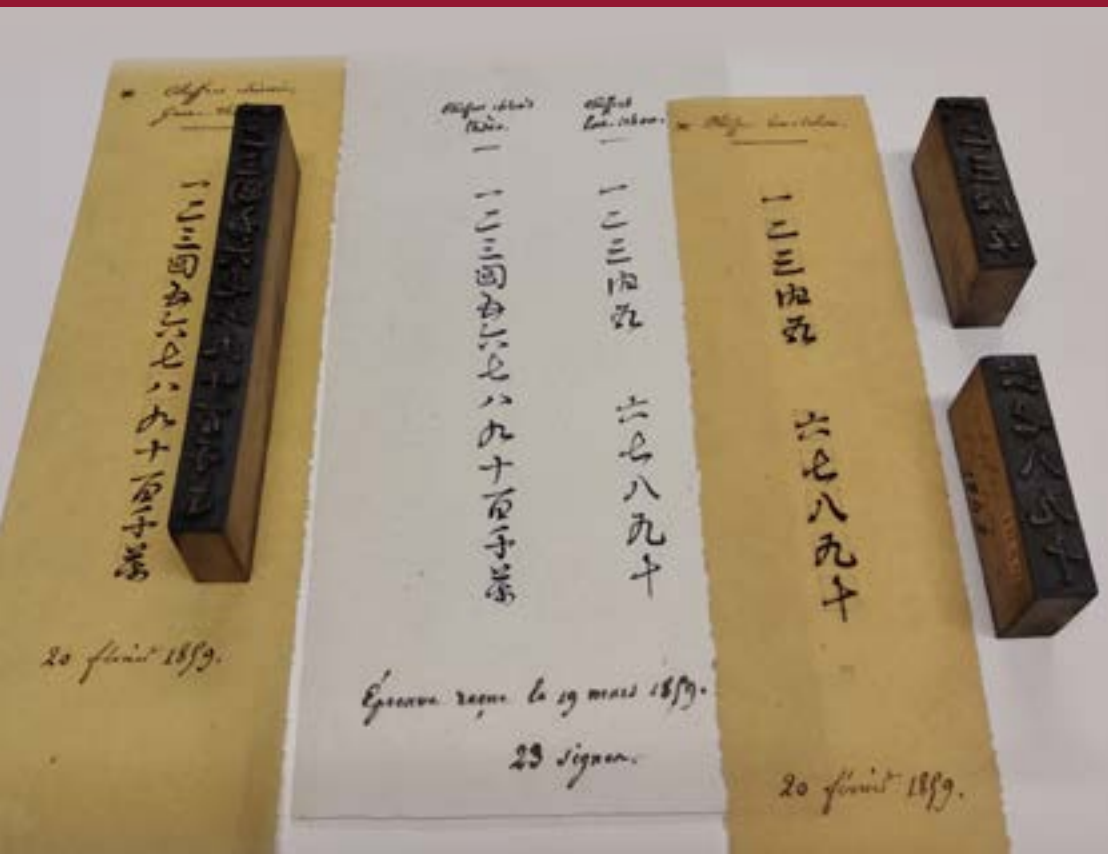 Chiffres chinois,
一二三四五六七八九十百千萬
20 février 1859.
Chiffres chinois
一二三四五六七八九十百千萬
Chiffres
一二三四五
六七八九十
Épreuve reçue le 19 mars 1859.
23 signes.
Chiffres
一二三四五
六七八九十
20 février 1859.